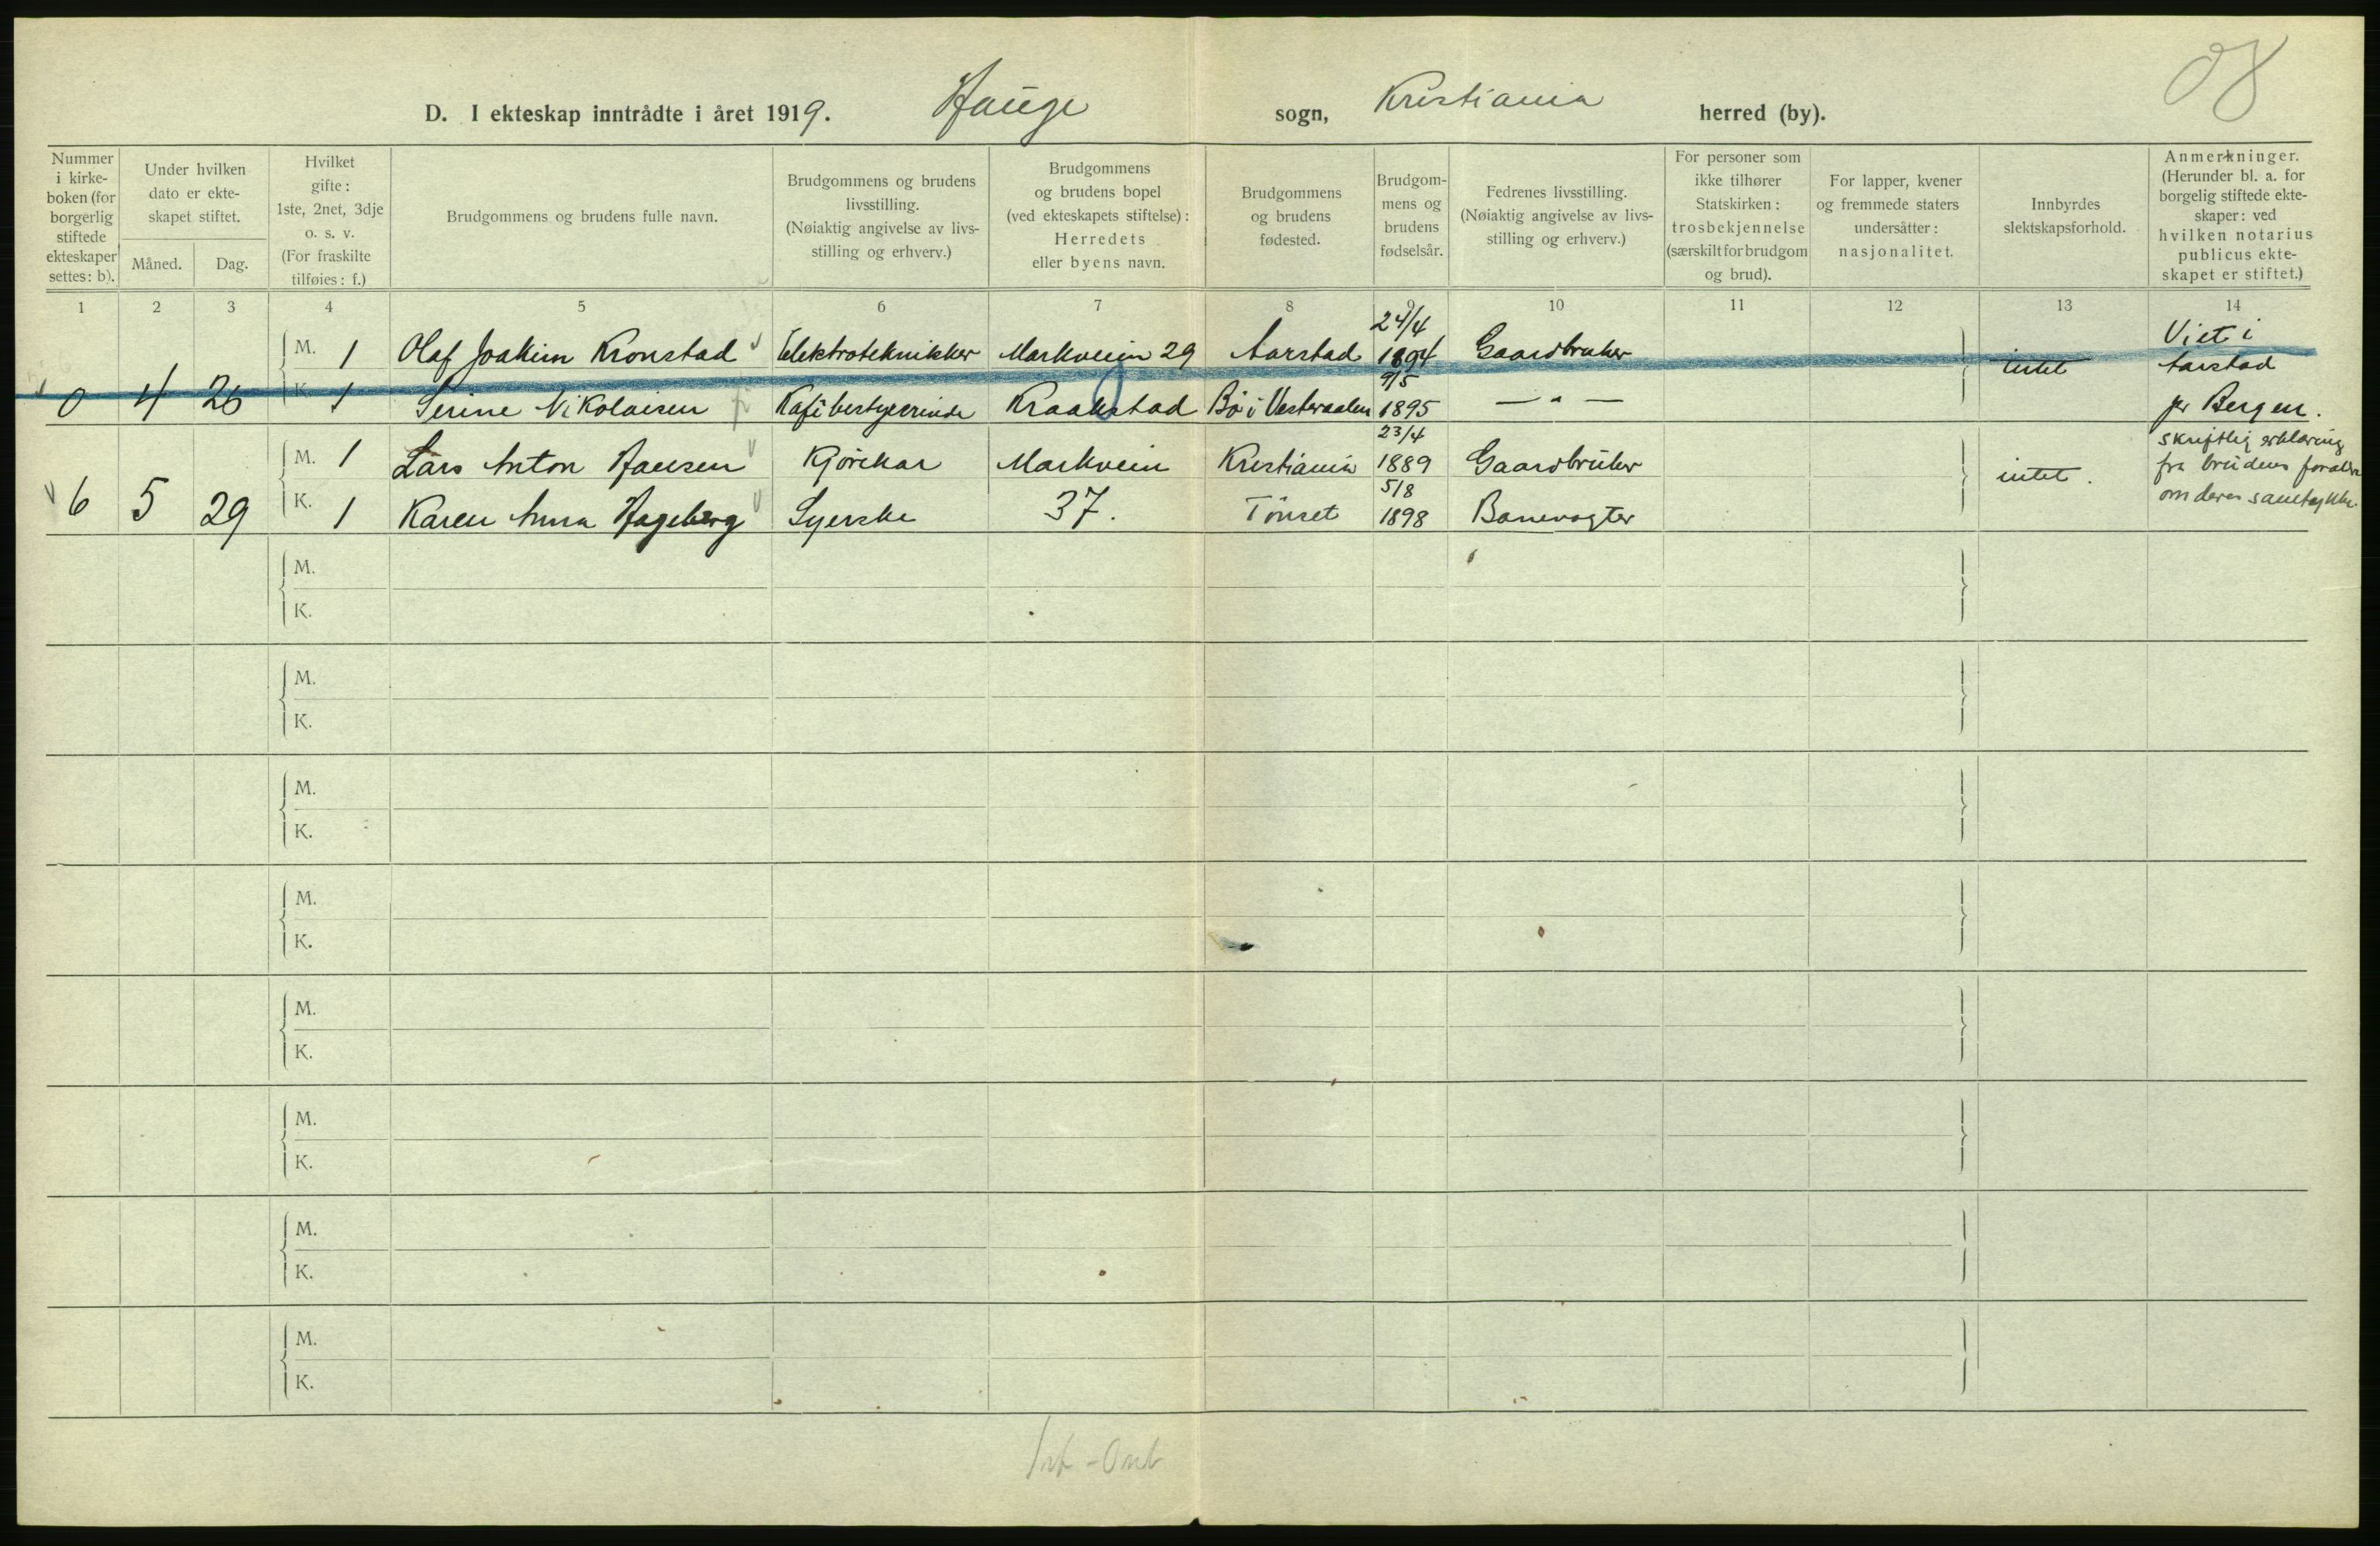 08
D. I ekteskap inntrådte i året 1919. Hauge sogn, Kristiania herred (by).
Nummer i kirke- boken (for borgerlig stiftede ekteskaper settes: b).
Under hvilken dato er ekte- skapet stiftet.
Måned. Dag.
Hvilket gifte: 1ste, 2net, 3dje o. s. v. (For fraskilte tilføies: f.)
Brudgommens og brudens fulle navn.
Brudgommens og brudens livsstilling. (Nøiaktig angivelse av livs- stilling og erhverv.)
Brudgommens og brudens bopel (ved ekteskapets stiftelse): Herredets eller byens navn.
Brudgommens og brudens fødested.
Brudgom- mens og brudens fødselsår.
Fedrenes livsstilling. (Nøiaktig angivelse av livs- stilling og erhverv.)
For personer som ikke tilhører Statskirken: trosbekjennelse (særskilt for brudgom og brud).
For lapper, kvener og fremmede staters undersåtter: nasjonalitet.
Innbyrdes slektskapsforhold.
Anmerkninger. (Herunder bl. a. for borgelig stiftede ekte- skaper: ved hvilken notarius publicus ekte- skapet er stiftet.)
1 2 3 4 5 6 7 8 9 10 11 12 13 14
M. 1 Olaf Joakim Kronstad Elektrotekniker Markveien 29 Aarstad 24/4 1894 Gaardbruker intet Viet i Aarstad
0 4 26 K. 1 Serine Nikolaisen Kafébestyrerinde Kraakstad Bö i Vesteraalen 9/5 1895 — " — pr Bergen.
M. 1 Lars Anton Hansen Kjörekar Markvein Kristiania 23/4 1889 Gaardbruker intet. skriftlig erklæring fra brudens forældre
6 5 29 K. 1 Karen Anna Hageberg Syerske 37. Tönset 5/8 1898 Banevogter om deres samtykke.
M.
K.
M.
K.
M.
K.
M.
K.
M.
K.
M.
K.
M.
K.
M.
K.